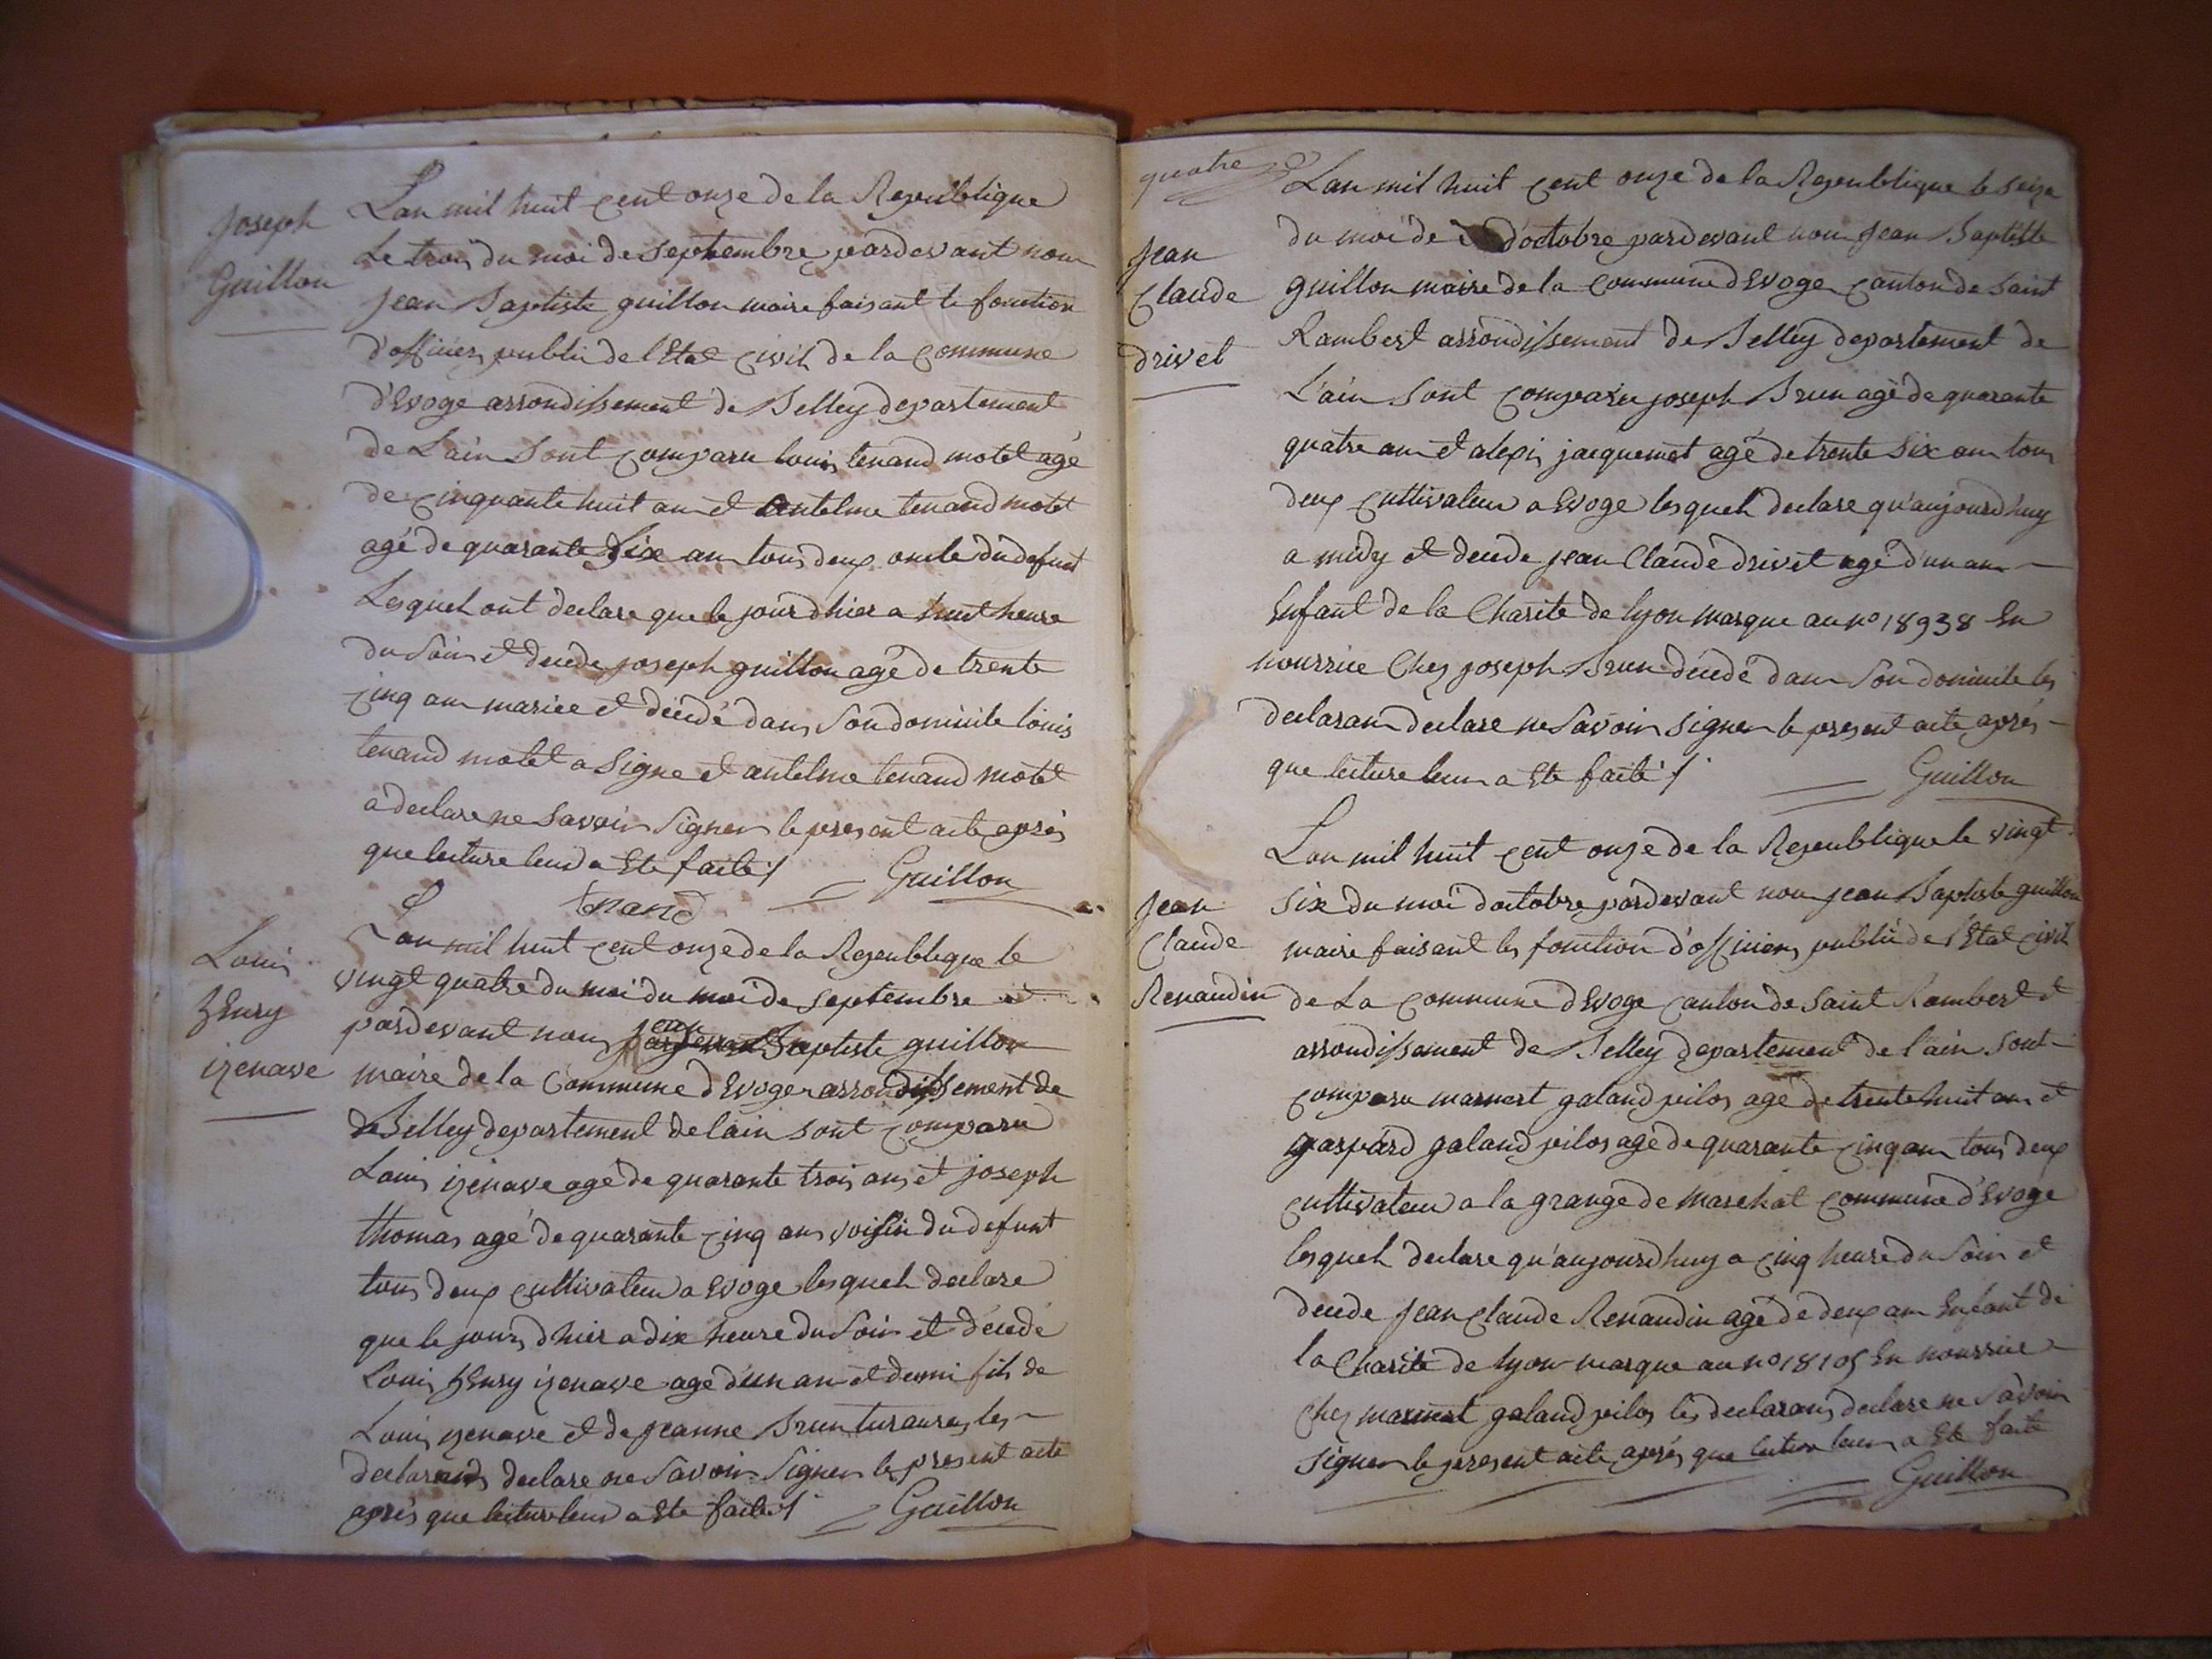 Joseph
Guillon
L'an mil huit cent onze de la Republique
Le trois du moi de Septembre pardevant nou
Jean Baptiste guillon maire faisant le fonction
d'officier public de l'Etat Civil de la Commune
d'Evoge arrondissement de Belley departement
de L'ain Sont Comparu louis tenand motet agé
de cinquante huit an et antelme tenand motet
agé de quarante Six an tous deux oncle du defunt
Lesquel ont declare que le jour d'hier a huit heure
du Soir et decede joseph guillon agé de trente
cinq an mariée et décédé dans Son domicile louis
tenand motet a Signe et antelme tenand motet
a declare ne Savoir Signer le present acte après
que lecture leur a Ete faite /
Guillon
tenand
Louis
hEnry
izenave
L'an mil huit cent onze de la Republique le
vingt quatre du moi du moi de Septembre et
pardevant nous jean Baptiste guillon
maire de la Commune d'Evoge arrondissement de
de Belley departement de lain Sont Comparu
Louis izenave agé de quarante trois ans et joseph
thomas agé de quarante cinq ans voisin du defunt
tous deux Cultivateur a Evoge lesquel declare
que le jour d'hier a dix heure du Soir et décedé
Louis hEnry izenave agé d'un an et demi fils de
Louis izenave et de jeanne Brun les
declarans declare ne Savoir Signer le present acte
après que lecture leur a Ete faite /
Guillon
quatre
Jean
Claude
drivet
L'an mil huit cent onze de la Republique le Seize
du moi de d'octobre pardevant nou jean Baptiste
guillon maire de la Commune d'Evoge canton de Saint
Rambert arrondissement de Belley departement de
L'ain Sont Comparu joseph Brun agé de quarante
quatre an et alexis jacquemet agé de trente Six an tous
deux Cultivateur a Evoge lesquel declare qu'aujourd'huy
a midy et decede jean Claude drivet agé d'un an
Enfant de la Charite de lyon marque au no 18938 En
nourrice Chez joseph Brun décédé dans Son domicile les
declaran declare ne Savoir Signer le present acte après
que lecture leur a Ete faite /
Guillon
Jean
Claude
Renaudin
L'an mil huit cent onze de la Republique le vingt
Six du moi d'octobre pardevant nou jean Baptiste guillon
maire faisant les fonction d'officier public de l'Etat Civil
de La Commune d'Evoge canton de Saint Rambert et
arrondissement de Belley departement de l'ain Sont
Comparu mamert galand pilos agé de trente huit an et
gaspard galand pilos agé de quarante cinq an tous deux
Cultivateur a la grange de marechat Commune d'Evoge
lesquel declare qu'aujourd'huy a cinq heure du Soir et
decede Jean Claude Renaudin agé de deux an Enfant de
la Charite de lyon marque au no 18105 En nourrice
Chez mamert galand pilos les declarans declare ne Savoir
Signer le present acte après que lecture leur a Ete faite
Guillon